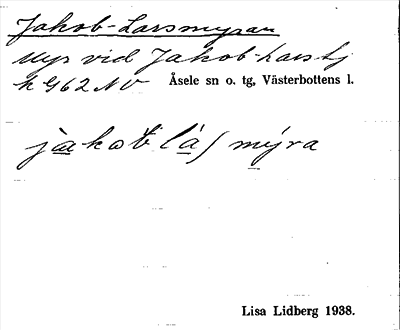 Jakob-Larsmyran
Myr vid Jakob-Larstj
k G62 NV Åsele sn o. tg, Västerbottens l.
jàkob lá/ mýra
Lisa Lidberg 1938.